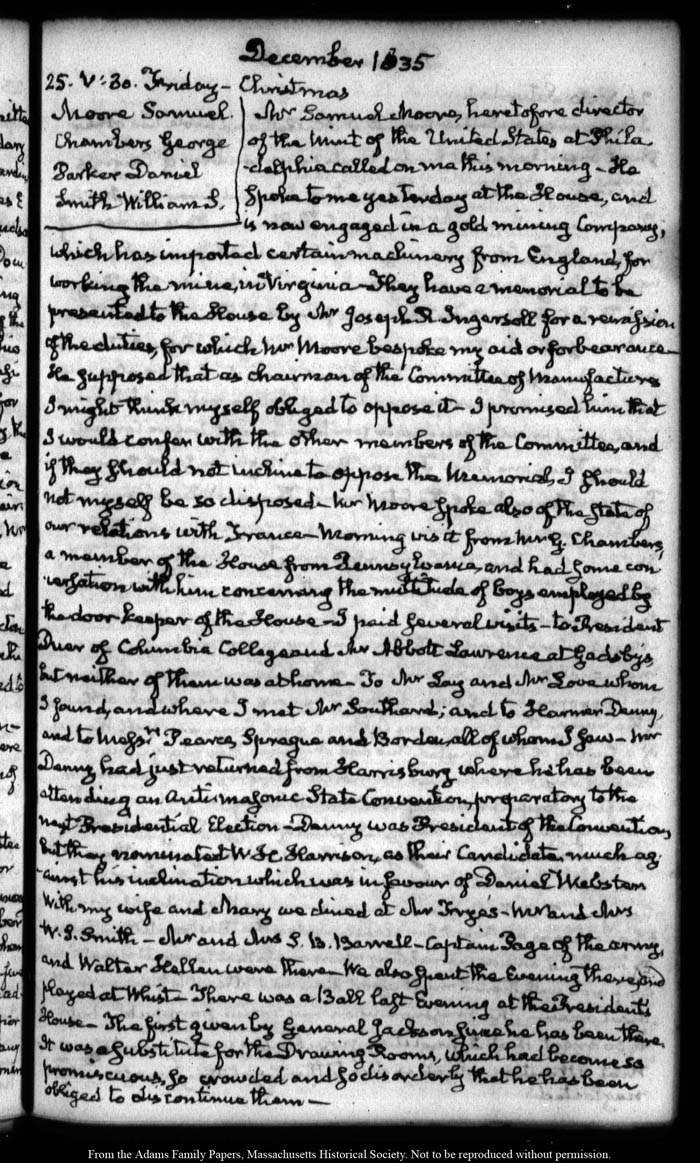 December 1835
25. V:30. Friday – Christmas
Moore Samuel.
Chambers George
Parker Daniel
Smith William S.
Mr Samuel Moore, heretofore director
of the Mint of the United States at Phila
-delphia called on me this morning – He
Spoke to me yesterday at the House, and
is now engaged in a gold mining Company,
which has imported certain machinery from England, for
working the mine, in Virginia – They have a memorial to be
presented to the House by Mr Joseph R Ingersoll for a remission
of the duties, for which Mr Moore bespoke my aid or forbearance –
He supposed that as chairman of the Committee of Manufactures
I might think myself obliged to oppose it – I promised him that
I would confer with the other members of the Committee, and
if they should not incline to oppose the Memorial, I should
not myself be so disposed – Mr Moore spoke also of the State of
our relations with France – Morning visit from Mr G. Chambers,
a member of the House from Pennsylvania, and had some con
versation with him concerning the multitude of boys employed by
the door-keeper of the House – I paid several visits – to President
Duer of Columbia College and Mr Abbott Lawrence at Gadsby's
but neither of them was at home – To Mr Lay and Mr Love whom
I found, and where I met Mr Southard; and to Harmar Denny,
and to Messrs Pearce, Sprague and Borden, all of whom I saw – Mr
Denny had just returned from Harrisburg where he has been
attending an Antimasonic State Convention, preparatory to the
next Presidential Election – Denny was President of the Convention,
but they nominated W. H. Harrison, as their Candidate, much ag
ainst his inclination which was in favour of Daniel Webster
With my wife and Mary we dined at Mr Frye's – Mr and Mrs
W. S. Smith – Mr and Mrs S. B. Barrell – Captain Page of the army,
and Walter Hellen were there – We also spent the Evening there, and
played at Whist – There was a Ball last Evening at the President's
House – The first given by General Jackson since he has been there.
It was a substitute for the Drawing Rooms, which had become so
promiscuous, so crowded and so disorderly that he has been
obliged to discontinue them –
From the Adams Family Papers, Massachusetts Historical Society. Not to be reproduced without permission.